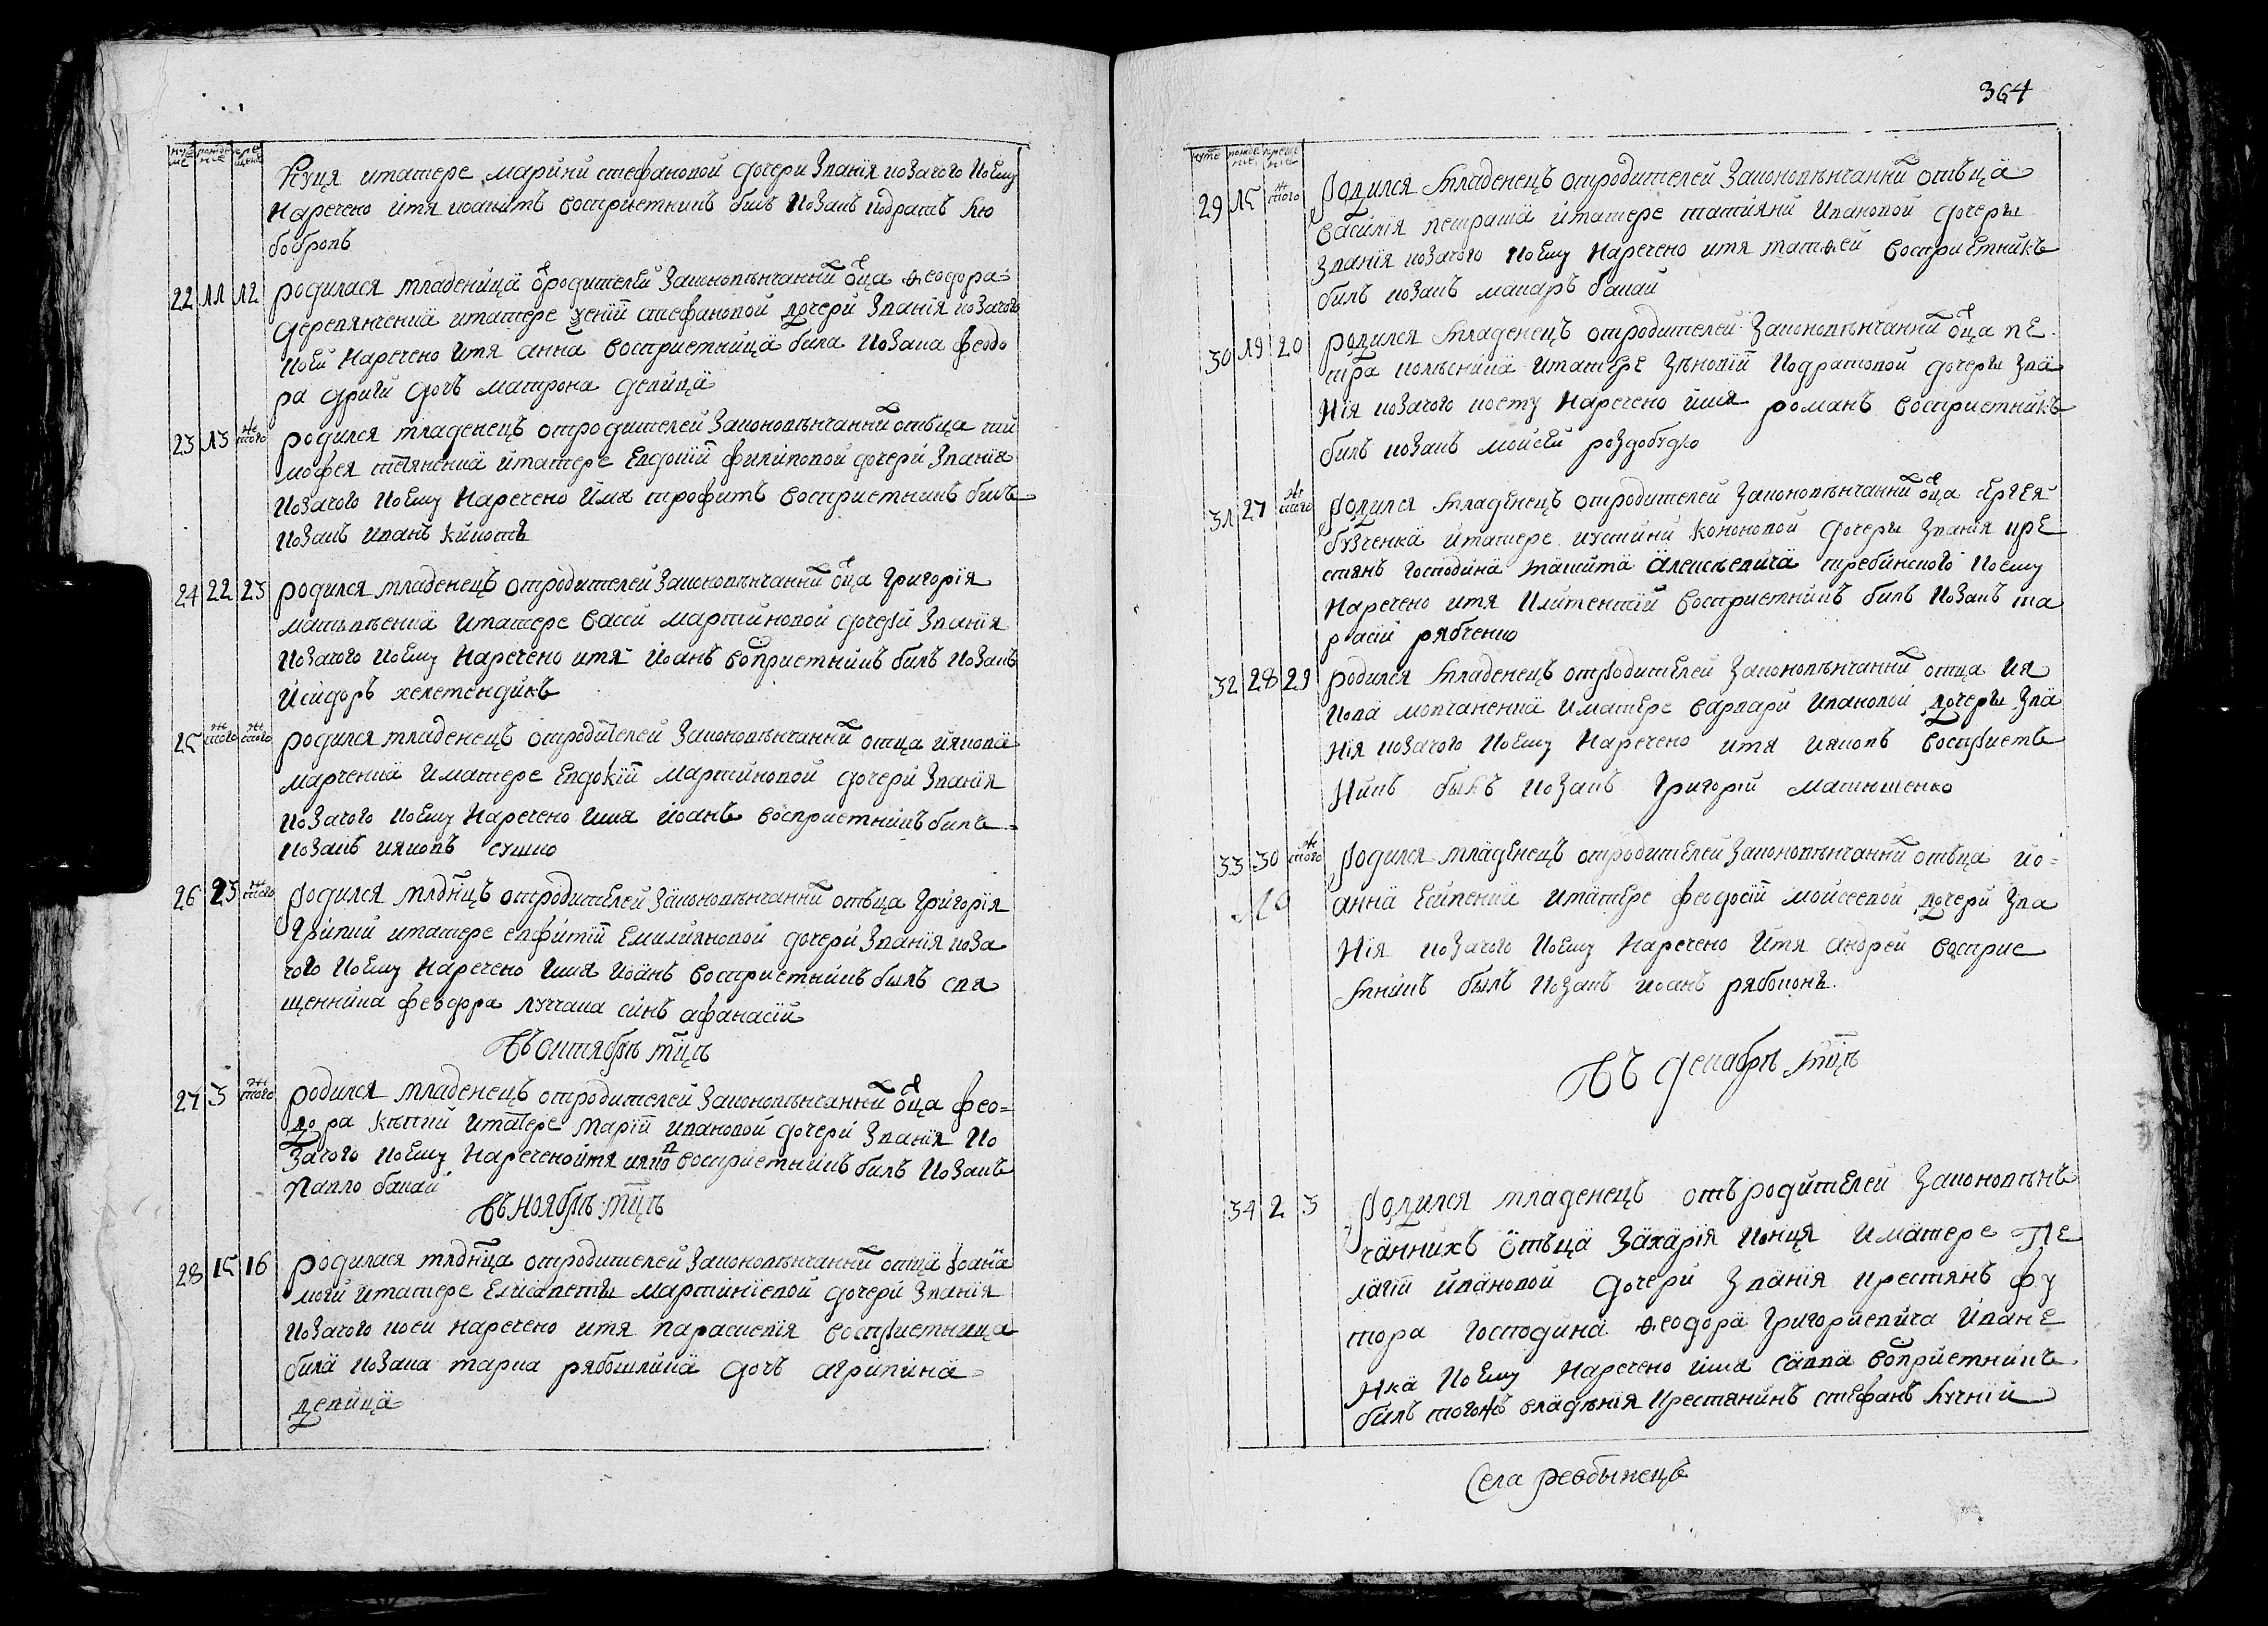 нуме рожде ние креще ние
Куця иматере марини стефановой дочери Званія козачого коему
Наречено имя иоакимъ восприемникъ билъ козакъ кодратъ лю
бобровъ
22 11 12 родилася младеница о родителей Законовѣнчанни оца ѳеодора
деревянченка иматере ксеніи стефановой дочери Званія козачого
коей Наречено имя анна восприемница била козака феодо
ра дриги дочъ матрона девица
23 13 тогожъ родился младенецъ отродителей Законовѣнчанни отъца тим
мофея иматере Евдокіи филиповой дочери Званія
козачого коему Наречено имя трофимъ восприемникъ билъ
козакъ иванъ
24 22 23 родился младенецъ отродителей Законовѣнчанни оца григорія
матвѣенка иматере васси мартиновой дочери Званія
козачого коему Наречено имя иоанъ воприемникъ билъ козакъ
исидоръ
25 тогожъ тогожъ родился младенецъ отродителей Законовѣнчанни отца иякова
марченка иматере Евдокіи мартиновой дочери Званія
козачого коему Наречено имя иоанъ восприемникъ билъ
козакъ ияковъ сушко
26 23 тогожъ родился младнцъ отродителей Законовѣнчанни отъца григорія
иматере евфиміи Емилияновой дочери Званія коза
чого коему Наречено имя иоанъ восприемникъ былъ свя
щенника феодора луччака синъ афанасій
Въ октябрѣ мцѣ
27 3 тогожъ родился младенецъ отродителей Законовѣнчанни оца фео=
дора иматере маріи ивановой дочери Званія ко
зачого коему Наречено имя ияков восприемникъ билъ козакъ
павло бакай
Въ ноябрѣ мцѣ
28 15 16 родилася младнца отродителей Законовѣнчанни отца иоана
моги иматере Елисаветы мартиніевой дочери Званія
козачого коей наречено имя параскевія восприемница
била козака марка рябошлика дочъ агрипина
девица
364
нуме рожде ние креще ние
29 15 тогожъ Родился младенецъ отродителей Законовѣнчанни отъца
василія петраша иматере татияни ивановой дочеры
Званія козачого коему наречено имя матѳей восприемникъ
билъ козакъ макаръ бакай
30 19 20 родился младенецъ отродителей Законовѣнчанни оца пе
тра колѣсника иматере Зѣновіи кодратовой дочеры зва
нія козачого коему Наречено имя романъ восприемникъ
билъ козакъ мойсей роздобудко
31 27 тогожъ Родился младенецъ отродителей Законовѣнчанни оца сергея
бузченка иматере иустини кононовой дочеры Званія кре
стянъ господина максима алексѣевича требинского коему
наречено имя климентий восприемникъ билъ козакъ та
расій рябченко
32 28 29 родился младенецъ отродителей Законовѣнчанни отца ия
кова мовчаненка иматере варвари ивановой дочеры зва
нія козачого коему наречено имя ияковъ восприем
никъ былъ козакъ григорій матюшенко
33 30 тогожъ Родился младенецъ отродителей Законовѣнчанни отъца ио=
10 анна есипенка иматере феодосіи мойсеевой дочери зва
нія козачого коему наречено имя андрей восприе
мникъ былъ козакъ иоанъ рябоконь.
Въ декабрѣ мцѣ
34 2 3 Родился младенецъ отъ родителей Законовѣнъ
чанникъ отъца Захарія конця иматере Пе
лагіи ивановой дочери Званія крестянъ фу
тора господина ѳеодора григориевича иване
нка коему наречено имя савва воприемникъ
билъ тогожъ владѣнія крестянинъ стефанъ кучній
Села ревбынецъ